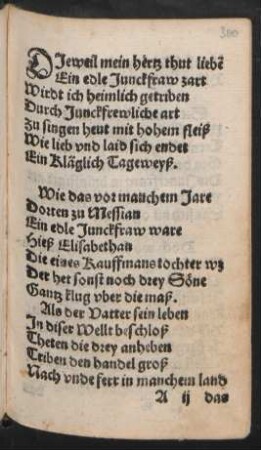 300
DJeweil mein hertz thut liebē
Ein edle Junckfraw zart
Wirdt ich heimlich getriben
Durch Junckfrewliche art
Zu singen heut mit hohem fleiß
Wie lieb vnd laid sich endet
Ein Kläglich Tageweyß.
Wie das vor manchem Jare
Dorten zu Messian
Ein edle Junckfraw ware
Hieß Elisabethan
Die eines Kauffmans tochter wz
Der het sonst noch drey Söne
Gantz klug vber die maß.
Als der Vatter sein leben
In diser Wellt beschloß
Theten die drey anheben
Triben den handel groß
Nach vnde ferr in manchem land
A ij das